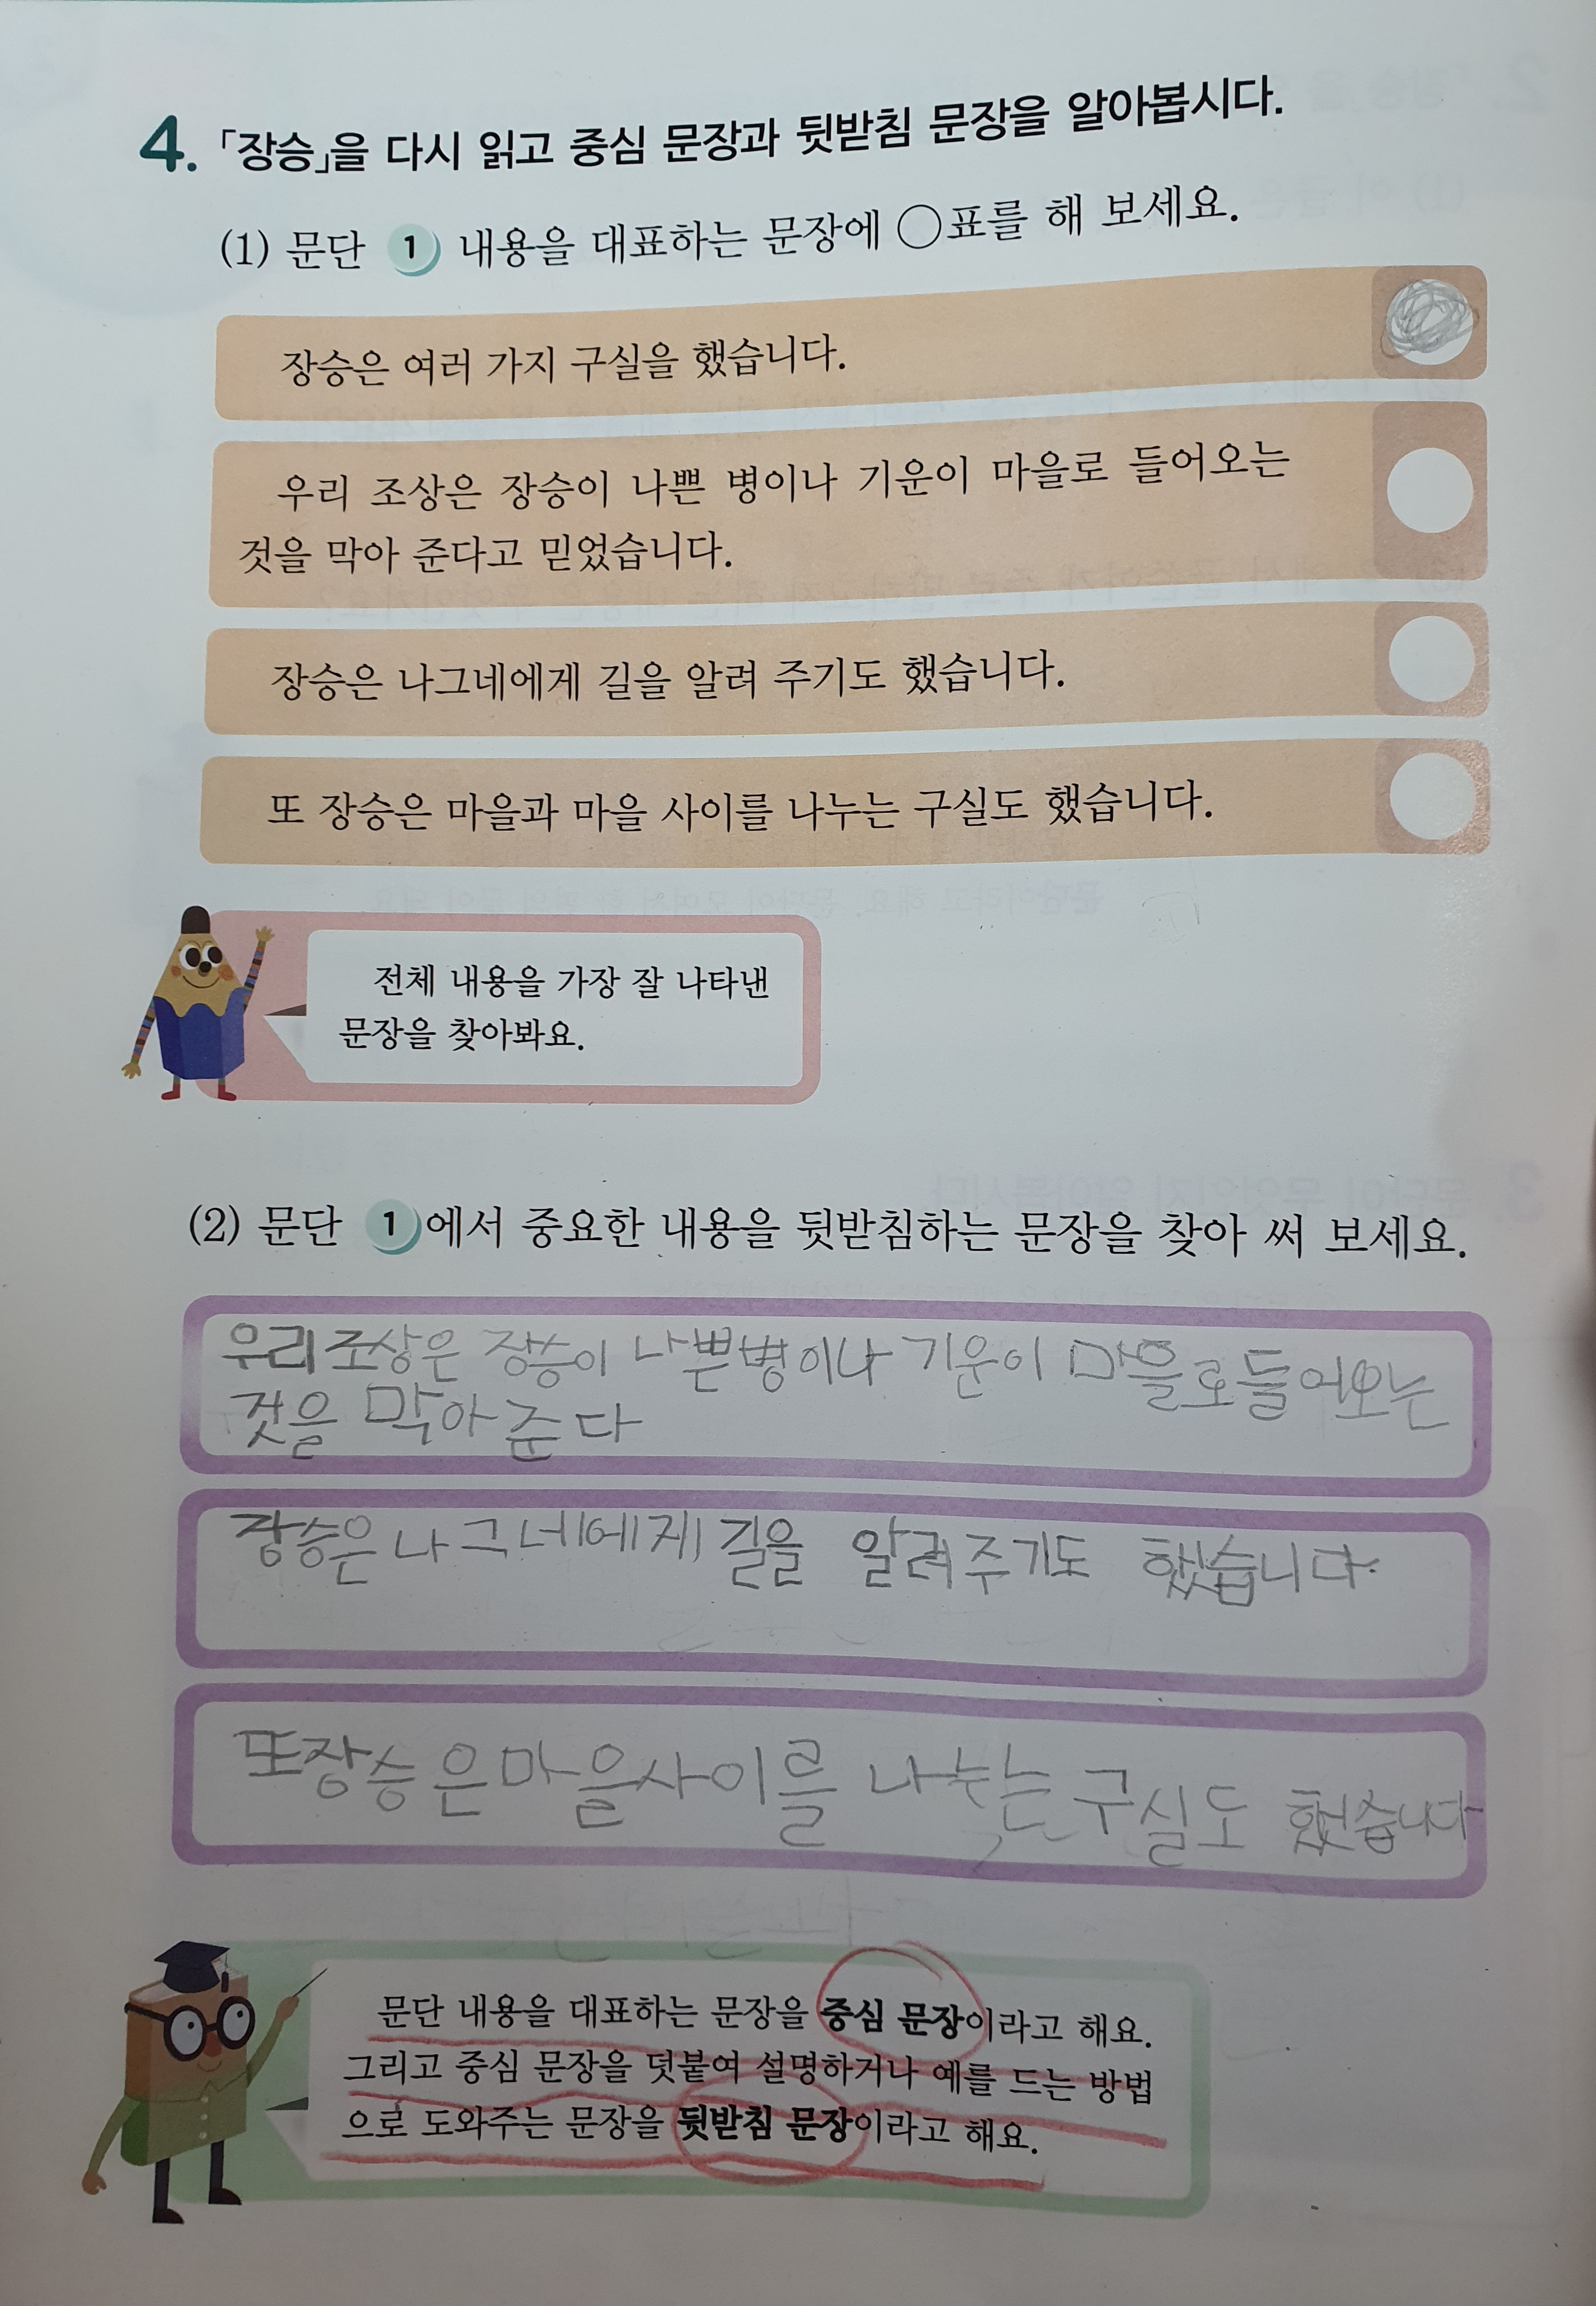 4. 「장승」을 다시 읽고 중심 문장과 뒷받침 문장을 알아봅시다.
(1) 문단 1 내용을 대표하는 문장에 ○표를 해 보세요.
장승은 여러 가지 구실을 했습니다.
우리 조상은 장승이 나쁜 병이나 기운이 마을로 들어오는
것을 막아 준다고 믿었습니다.
장승은 나그네에게 길을 알려 주기도 했습니다.
또 장승은 마을과 마을 사이를 나누는 구실도 했습니다.
전체 내용을 가장 잘 나타낸
문장을 찾아봐요.
(2) 문단 1에서 중요한 내용을 뒷받침하는 문장을 찾아 써 보세요.
우리조상은 장승이 나쁜병이나 기운이 마을로들어오는
것을 막아준다
장승은나그네에게 길을 알려주기도 했습니다.
또장승은마을사이를 나누는구실도 했습니다
문단 내용을 대표하는 문장을 중심 문장이라고 해요.
그리고 중심 문장을 덧붙여 설명하거나 예를 드는 방법
으로 도와주는 문장을 뒷받침 문장이라고 해요.